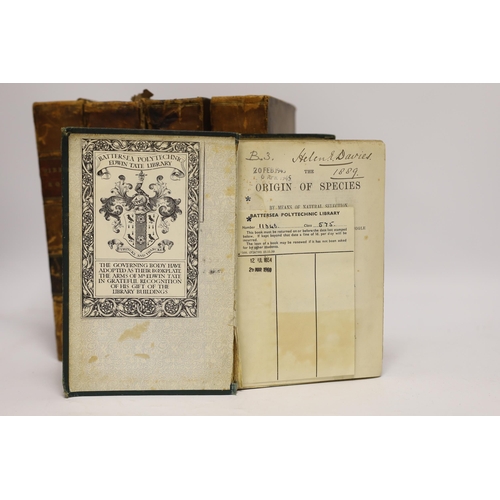 BATTERSEA POLYTECHNIC
EDWIN TATE LIBRARY
THE GOVERNING BODY HAVE
ADOPTED AS THEIR BOOKPLATE
THE ARMS OF MR EDWIN TATE
IN GRATEFUL RECOGNITION
OF HIS GIFT OF THE
LIBRARY BUILDINGS
B.3.
Helen J. Davies
1889
THE
ORIGIN OF SPECIES
BY MEANS OF NATURAL SELECTION
BATTERSEA POLYTECHNIC LIBRARY
Number 11365 Class 575
This book must be returned on or before the date last stamped
below. If kept beyond that date a fine of 1d per day will be
incurred.
The loan of a book may be renewed if it has not been asked
for by other students.